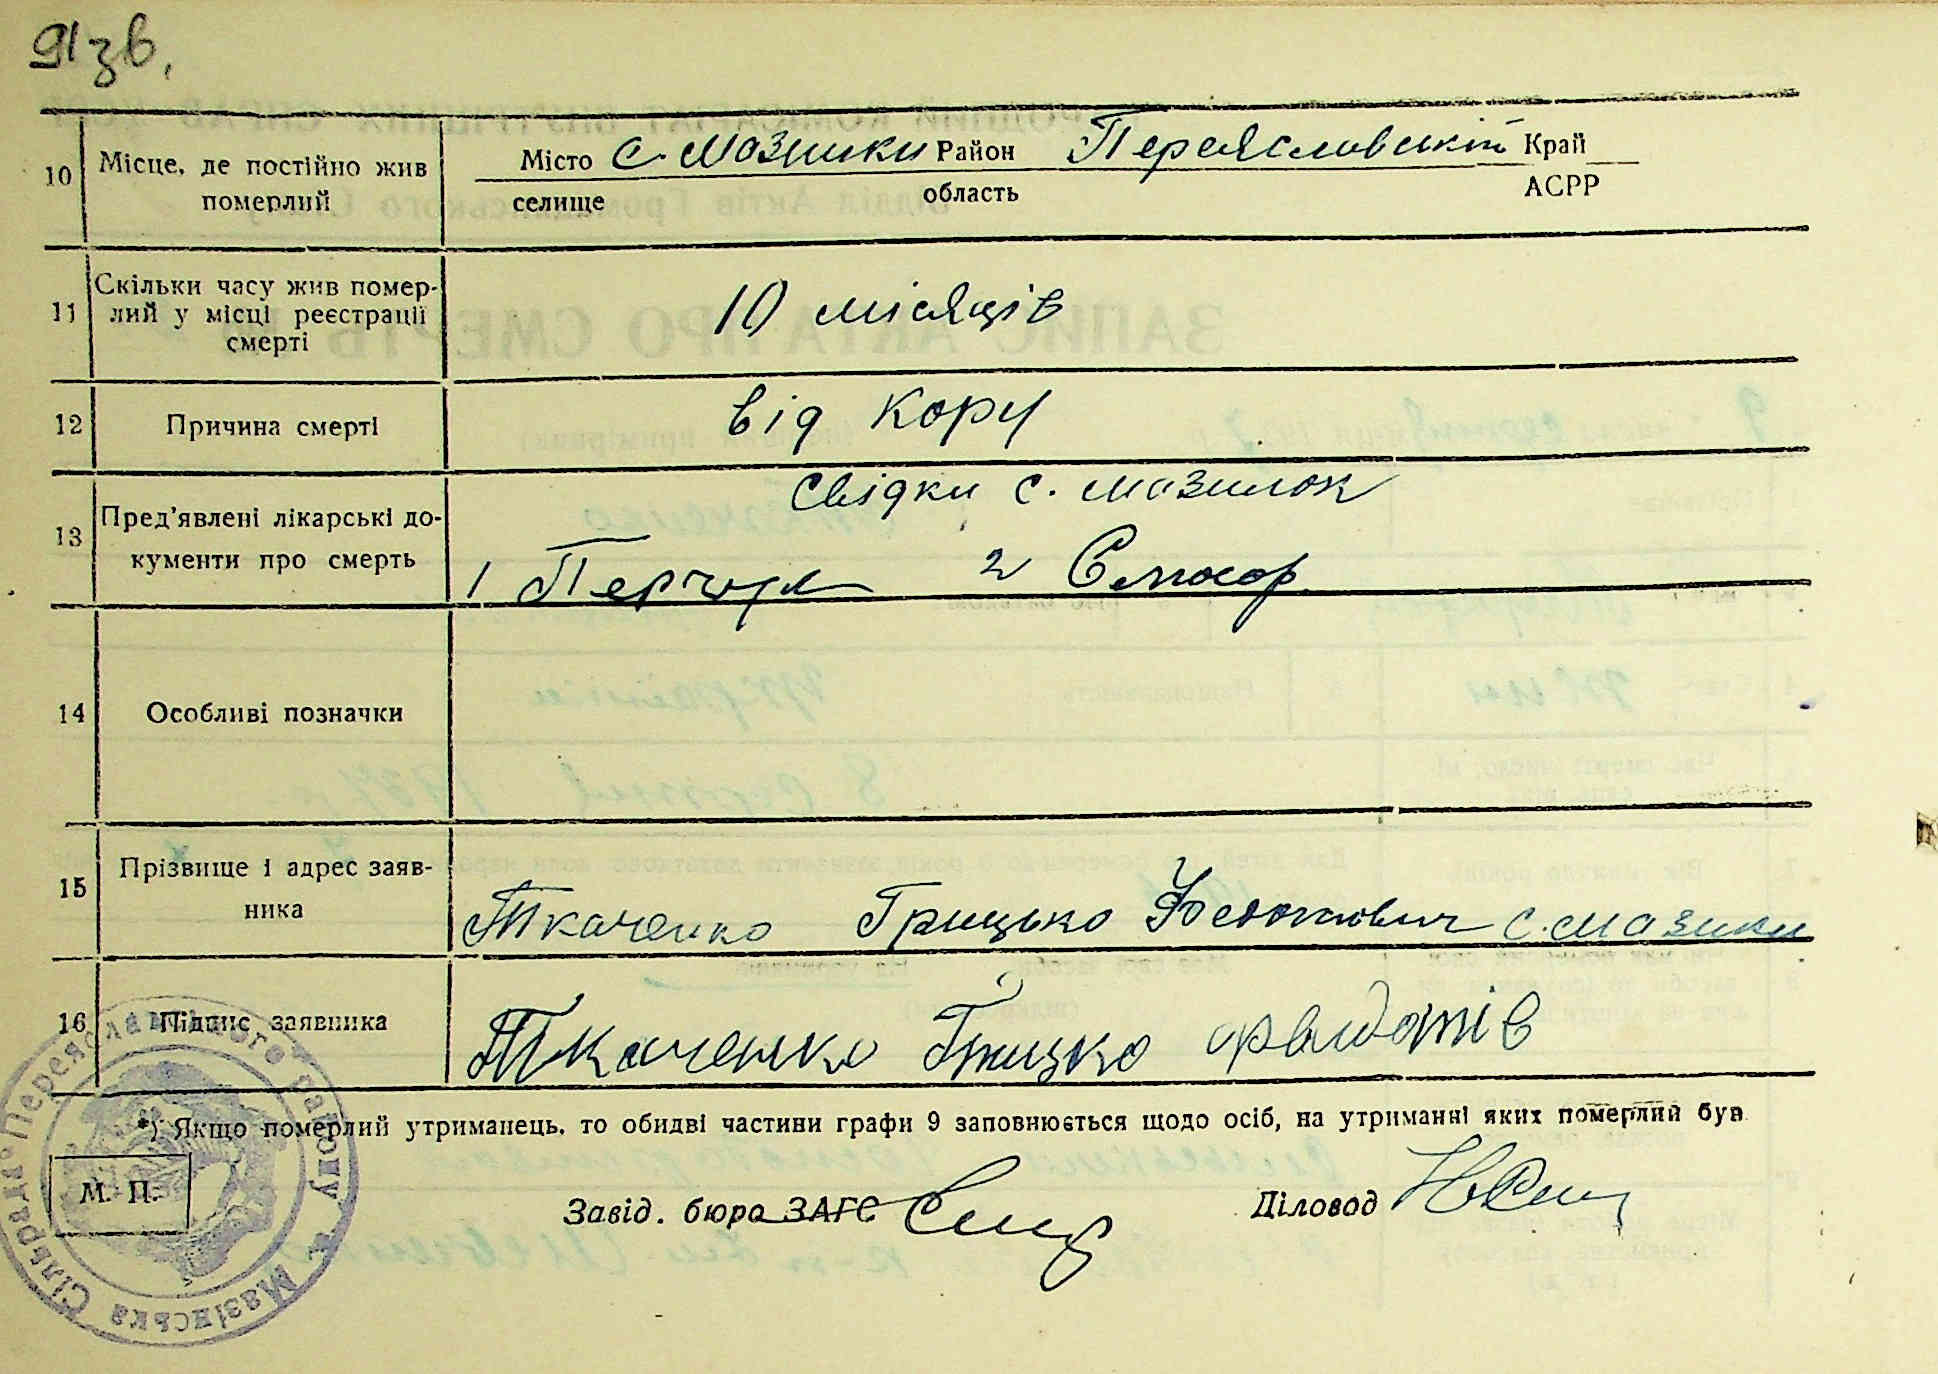 91 зв.
10 Місце, де постійно жив померлий
Місто с. Мазинки Район Переяславський Край
селище область АСРР
11 Скільки часу жив помер-
лий у місці реєстрації
смерті
10 місяців
12 Причина смерті
від кору
13 Пред'явлені лікарські до-
кументи про смерть
Свідки с. Мазинок
1 2
14 Особливі позначки
15 Прізвище і адрес заяв-
ника
Ткаченко Грицько с. Мазинки
16 Підпис заявника
Ткаченко Грицко
*) Якщо померлий утриманець, то обидві частини графи 9 заповнюється щодо осіб, на утриманні яких померлий був
М. П.
Завід. бюро ЗАГС
Діловод
Мазінська Сільрада Переяславського району